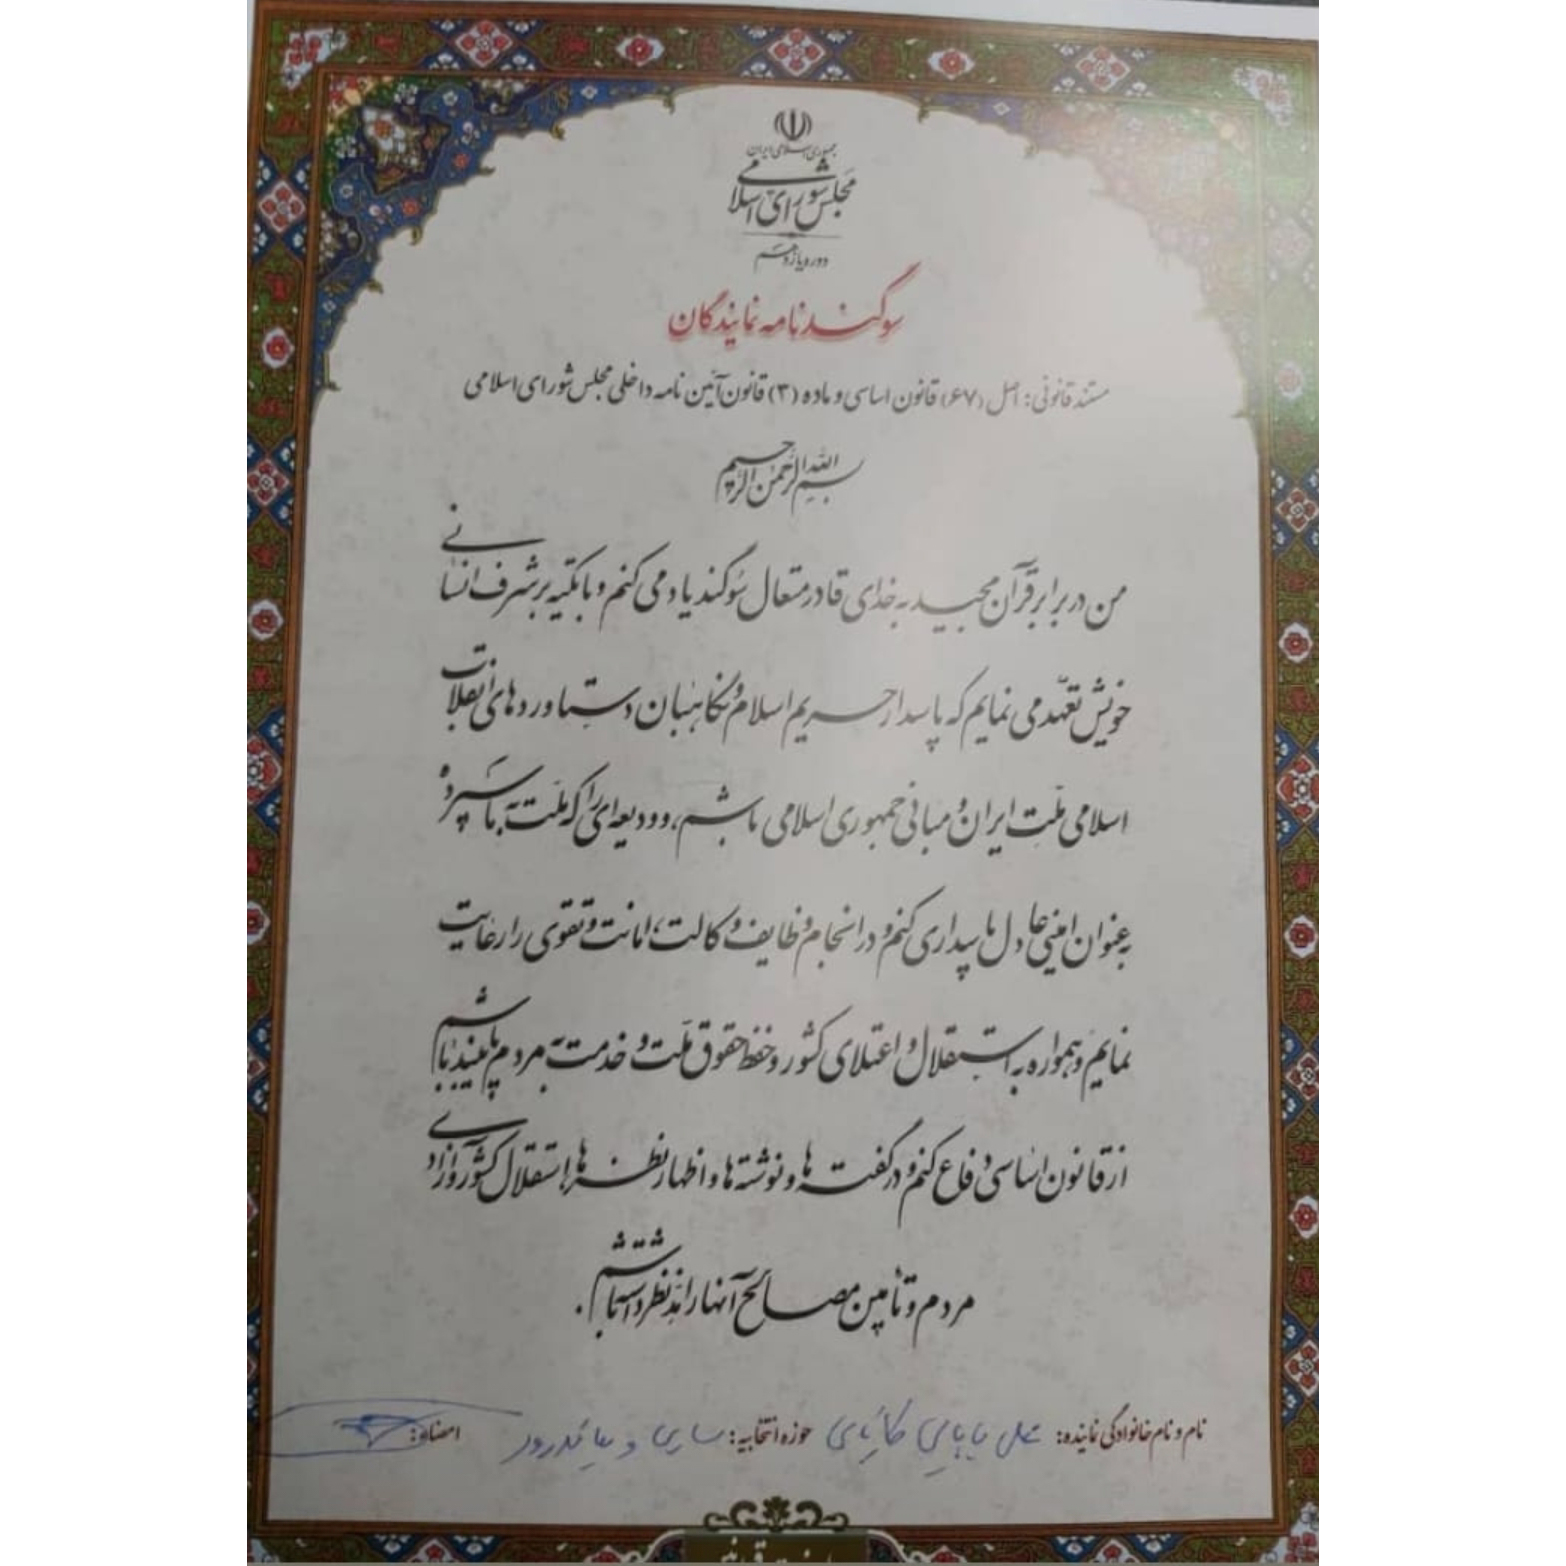 جمهوری اسلامی ایران
مجلس شورای اسلامی
دوره یازدهم
سوگندنامه نمایندگان
مستند قانونی: اصل (۶۷) قانون اساسی و ماده (۳) قانون آئین نامه داخلی مجلس شورای اسلامی
بسم الله الرحمن الرحیم
من در برابر قرآن مجید به خدای قادر متعال سوگند یاد می کنم و با تکیه بر شرف انسانی
خویش تعهد می نمایم که پاسدار حریم اسلام و نگاهبان دستاوردهای انقلاب
اسلامی ملت ایران و مبانی جمهوری اسلامی باشم، و ودیعه ای را که ملت به ما سپرده
به عنوان امینی عادل پاسداری کنم و در انجام وظایف وکالت، امانت و تقوی را رعایت
نمایم و همواره به استقلال و اعتلای کشور و حفظ حقوق ملت و خدمت به مردم پایبند باشم
از قانون اساسی دفاع کنم و در گفته ها و نوشته ها و اظهار نظرها، استقلال کشور و آزادی
مردم و تأمین مصالح آنها را مد نظر داشته باشم.
نام و نام خانوادگی نماینده: علی بابایی کارنامی حوزه انتخابیه: ساری و میاندرود امضاء: